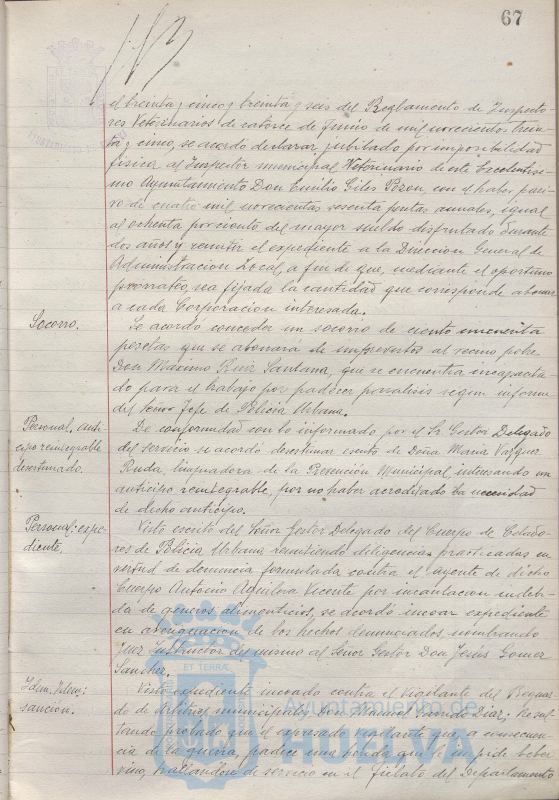 67
el treinta y cinco y treinta y seis del Reglamento de Inspecto-
res Veterinarios de catorce de Junio de mil novecientos trein-
ta y cinco, se acordo declarar jubilado por imposibilidad
fisica al Inspector municipal Veterinario de este Excelentisi-
mo Ayuntamiento Don Emilio Giles Pozon, con el haber pasi-
vo de cuatro mil novecientas sesenta pesetas anuales, igual
al ochenta por ciento del mayor sueldo disfrutado durante
dos años y remitir el expediente a la Direccion General de
Administracion Local, a fin de que, mediante el oportuno
prorrateo, sea fijada la cantidad que corresponde abonar
a cada Corporacion interesada.
Socorro.
Se acordo conceder un socorro de ciento cincuenta
pesetas que se abonará de imprevistos al vecino pobre
Don Maximo Ruiz Santana, que se encuentra incapacita-
do para el trabajo por padecer paralisis segun informe
del Señor Jefe de Policia Urbana.
Personal, anti-
cipo reintegrable
desestimado.
De conformidad con lo informado por el Sr. Gestor Delegado
del servicio se acordó desestimar escrito de Doña Maria Vazquez
Rueda, limpiadora de la Prevención Municipal, interesando un
anticipo reintegrable, por no haber acreditado la necesidad
de dicho anticipo.
Personal: expe-
diente.
Visto escrito del Señor Gestor Delegado del Cuerpo de Celado-
res de Policia Urbana, remitiendo diligencias practicadas en
virtud de denuncia formulada contra el agente de dicho
Cuerpo Antonio Aguilera Vicente por incautacion indebi-
da de géneros alimenticios, se acordó incoar expediente
en averiguacion de los hechos denunciados, nombrando
Juez Instructor del mismo al Señor Gestor Don Jesús Gomez
Sanchez.
Idem. Idem:
sancion.
Visto expediente incoado contra el Vigilante del Resguar-
do de Arbitrios municipales, Don Manuel Garrido Diaz; Resul-
tando probado que el expresado vigilante que, a consecuen-
cia de la guerra, padece una herida que le impide beber
vino, hallandose de servicio en el fielato del Departamento
ET TERRÆ
Ayuntamiento de
HUELVA